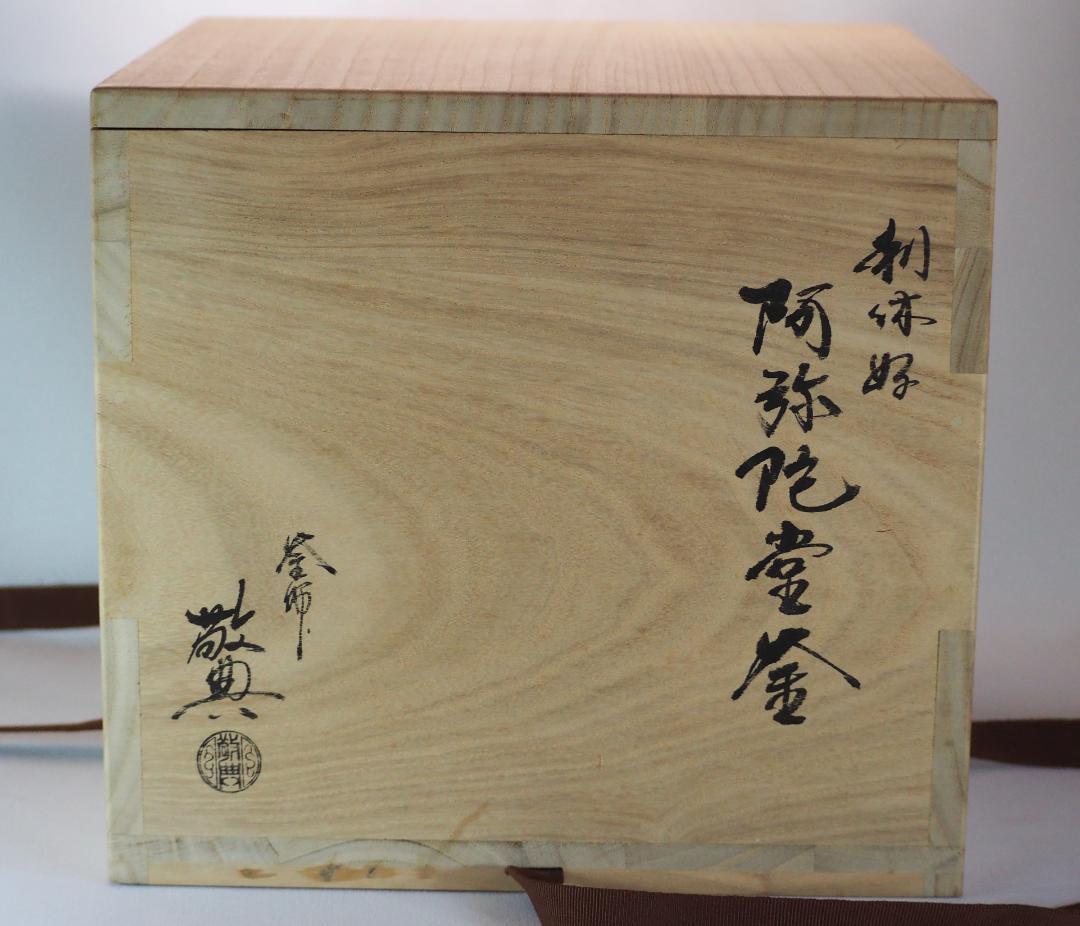 利休好
阿弥陀堂釜
釜師
敬典
敬典